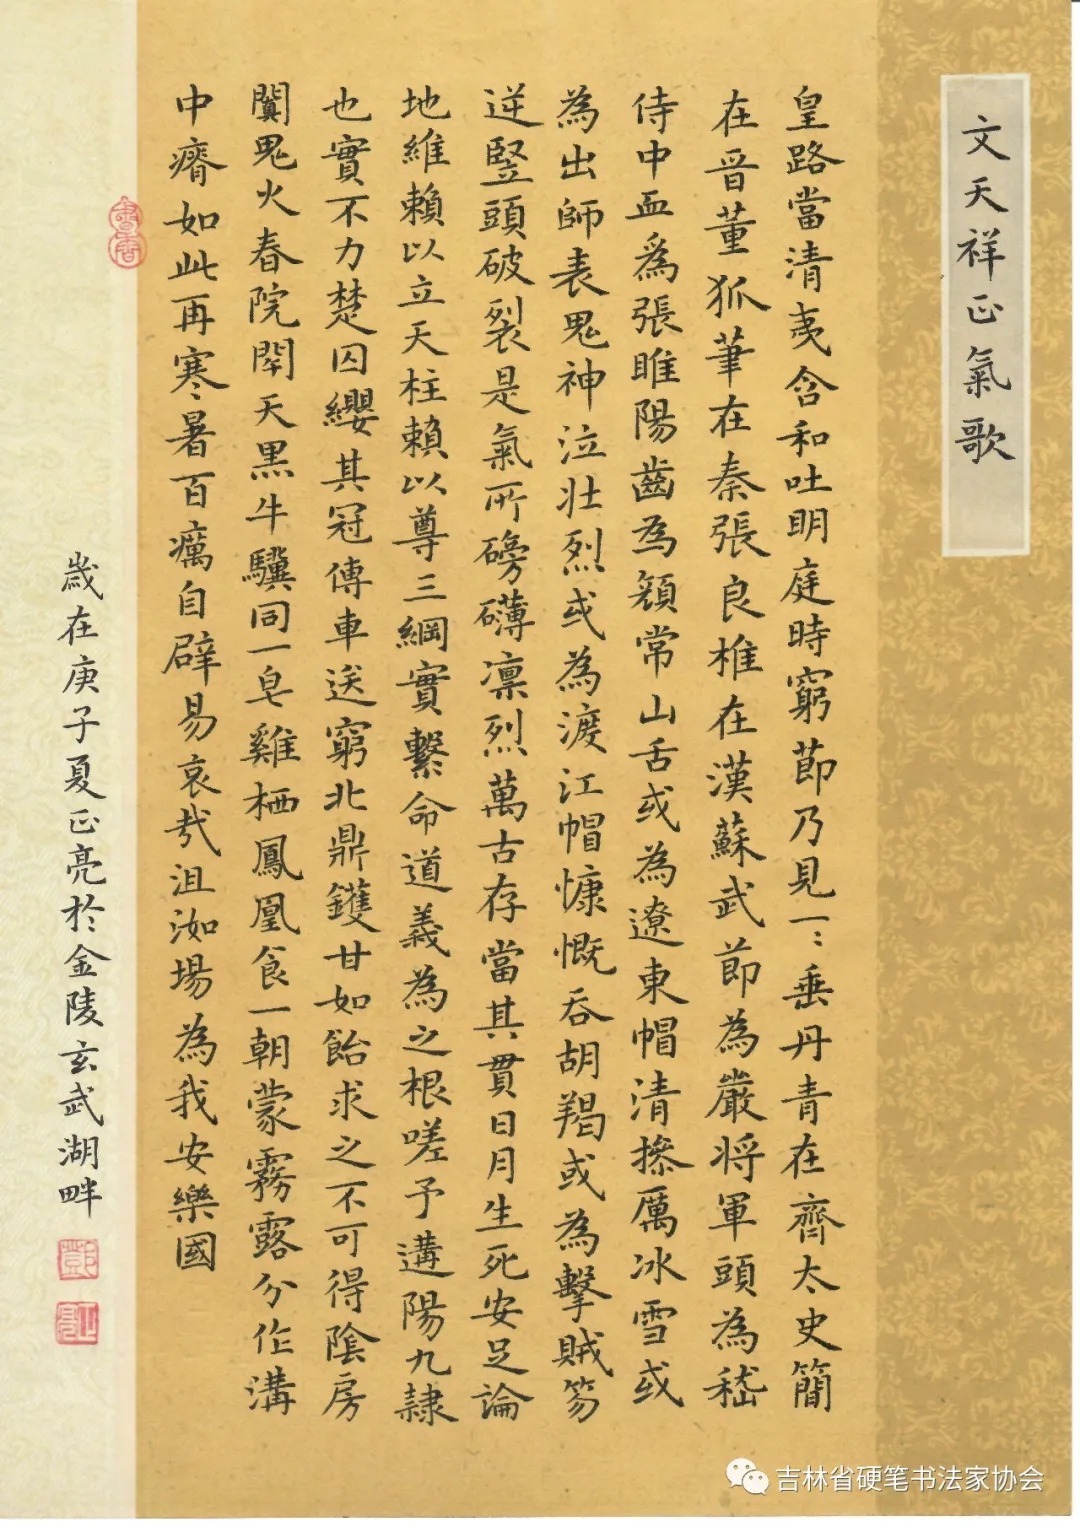 文天祥正氣歌
皇路當清夷含和吐明庭時窮節乃見一々垂丹青在齊太史簡
在晉董狐筆在秦張良椎在漢蘇武節為嚴將軍頭為嵇
侍中血為張睢陽齒為顏常山舌或為遼東帽清操厲冰雪或
為出師表鬼神泣壯烈或為渡江帽慷慨吞胡羯或為擊賊笏
逆豎頭破裂是氣所磅礴凛烈萬古存當其貫日月生死安足論
地維賴以立天柱賴以尊三綱實繫命道義為之根嗟予遘陽九隸
也實不力楚囚纓其冠傳車送窮北鼎鑊甘如飴求之不可得陰房
闃鬼火春院閉天黑牛驥同一皂雞栖鳳凰食一朝蒙霧露分作溝
中瘠如此再寒暑百癘自辟易哀哉沮洳場為我安樂國
歲在庚子夏正亮於金陵玄武湖畔
吉林省硬笔书法家协会